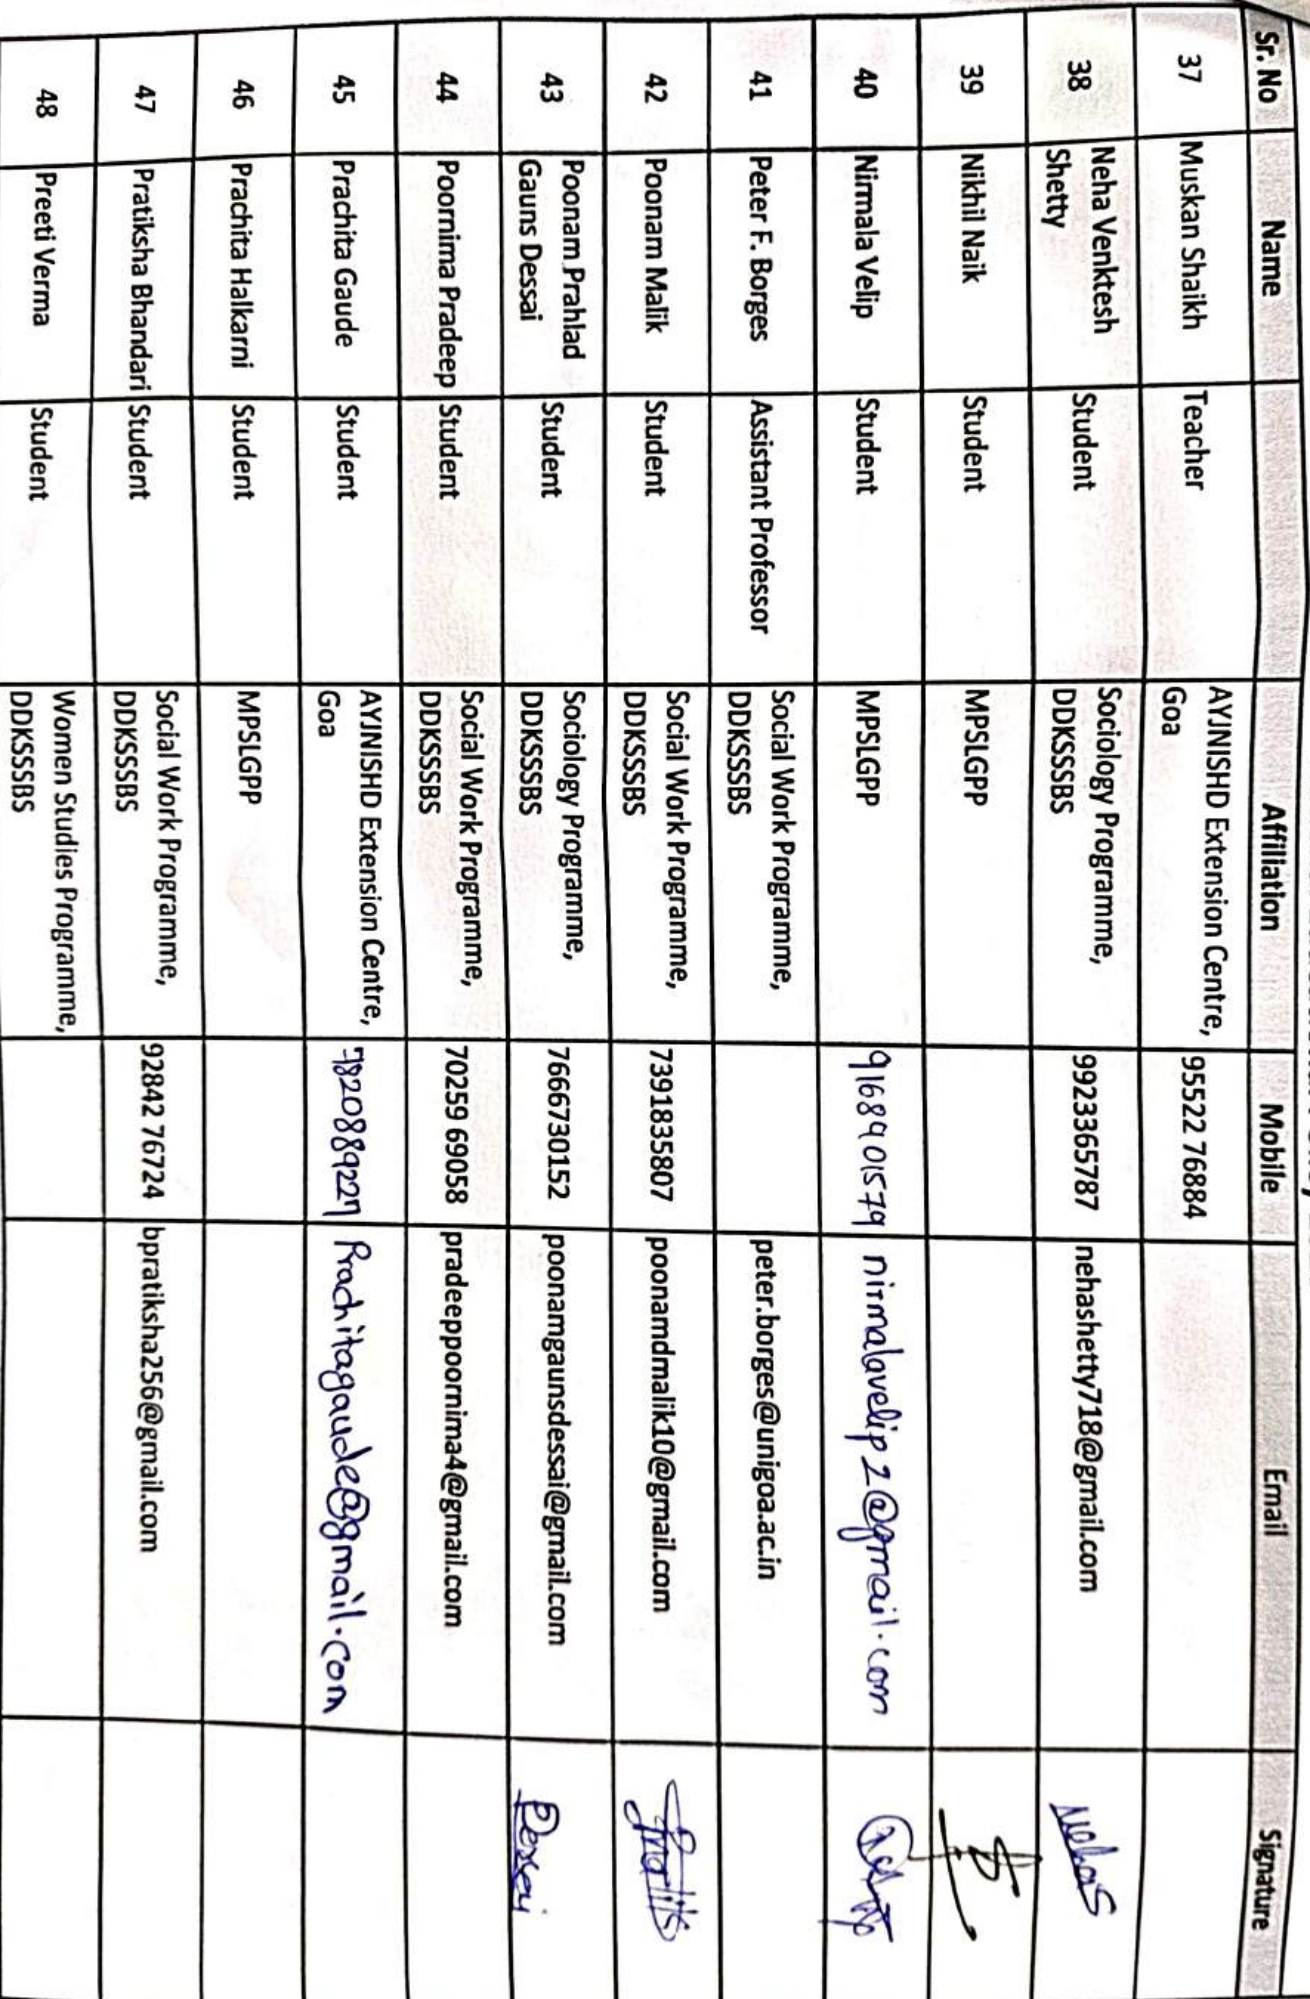 Sr. No Name Affiliation Mobile Email Signature
37 Muskan Shaikh Teacher AYJNISHD Extension Centre, 95522 76884
Goa
38 Neha Venktesh Student Sociology Programme, 9923365787 nehashetty718@gmail.com Nehas
Shetty DDKSSSBS
39 Nikhil Naik Student MPSLGPP
40 Nirmala Velip Student MPSLGPP 9168901579 nirmalavelip2@gmail.com
41 Peter F. Borges Assistant Professor Social Work Programme, peter.borges@unigoa.ac.in
DDKSSSBS
42 Poonam Malik Student Social Work Programme, 7391835807 poonamdmalik10@gmail.com
DDKSSSBS
43 Poonam Prahlad Student Sociology Programme, 7666730152 poonamgaunsdessai@gmail.com Dessai
Gauns Dessai DDKSSSBS
44 Poornima Pradeep Student Social Work Programme, 70259 69058 pradeeppoornima4@gmail.com
DDKSSSBS
45 Prachita Gaude Student AYJNISHD Extension Centre, Prachitagaude@gmail.com
Goa
46 Prachita Halkarni Student MPSLGPP
47 Pratiksha Bhandari Student Social Work Programme, 92842 76724 bpratiksha256@gmail.com
DDKSSSBS
48 Preeti Verma Student Women Studies Programme,
DDKSSSBS